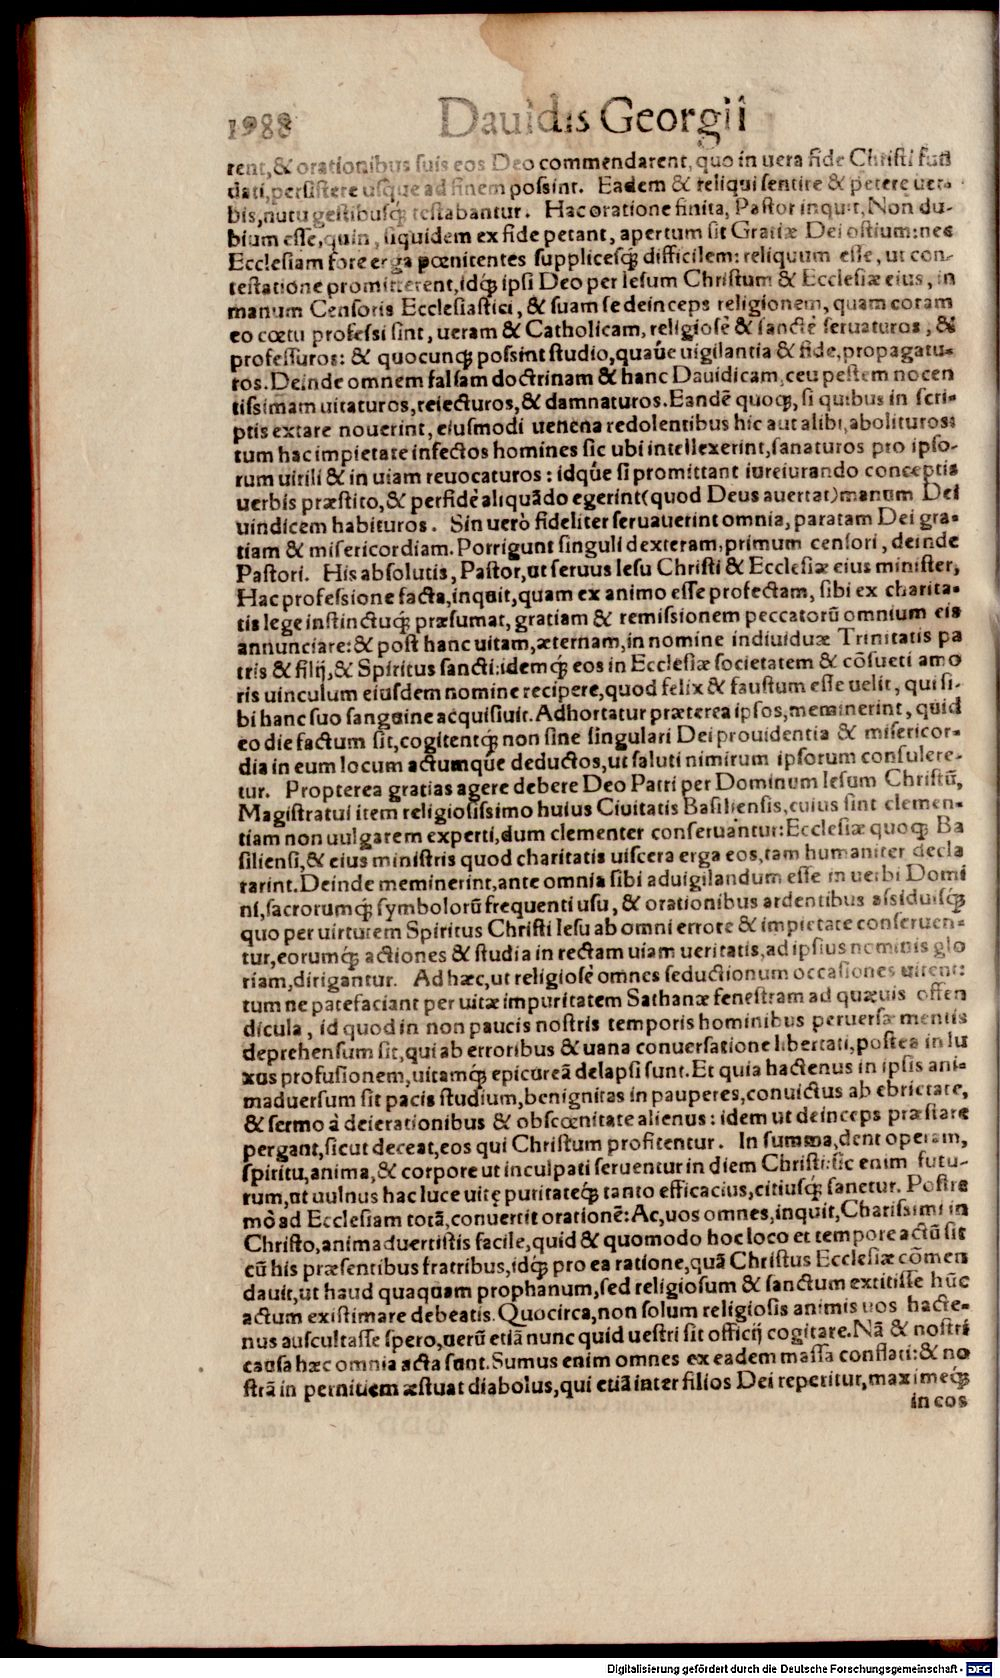 1988 Dauidis Georgii
rent, & orationibus suis eos Deo commendarent, quo in uera fide Christi fun
dati, persistere usque ad finem possint. Eadem & reliqui sentire & petere uer-
bis, nutu gestibusq́; testabantur. Hac oratione finita, Pastor inquit, Non du-
bium esse, quin, siquidem ex fide petant, apertum sit Gratiæ Dei ostium: nec
Ecclesiam fore erga pœnitentes supplicesq́; difficilem: reliquum esse, ut con-
testatione promitterent, idq́; ipsi Deo per Iesum Christum & Ecclesiæ eius, in
manum Censoris Ecclesiastici, & suam se deinceps religionem, quam coram
eo cœtu professi sint, ueram & Catholicam, religiosè & sanctè seruaturos, &
professuros: & quocunq; possint studio, quaúe uigilantia & fide, propagatu-
ros. Deinde omnem falsam doctrinam & hanc Dauidicam, ceu pestem nocen
tissimam uitaturos, reiecturos, & damnaturos. Eandē quoq;, si quibus in scri-
ptis extare nouerint, eiusmodi uenena redolentibus hic aut alibi, abolituros:
tum hac impietate infectos homines sic ubi intellexerint, sanaturos pro ipso-
rum uirili & in uiam reuocaturos: idq́ue si promittant iureiurando conceptis
uerbis præstito, & perfidè aliquãdo egerint (quod Deus auertat) manum Dei
uindicem habituros. Sin uerò fideliter seruauerint omnia, paratam Dei gra-
tiam & misericordiam. Porrigunt singuli dexteram, primum censori, deinde
Pastori. His absolutis, Pastor, ut seruus Iesu Christi & Ecclesiæ eius minister,
Hac professione facta, inquit, quam ex animo esse profectam, sibi ex charita-
tis lege instinctuq́; præsumat, gratiam & remissionem peccatorũ omnium eis
annunciare: & post hanc uitam, æternam, in nomine indiuiduæ Trinitatis pa
tris & filij, & Spiritus sancti: idemq́; eos in Ecclesiæ societatem & cõsueti amo
ris uinculum eiusdem nomine recipere, quod felix & faustum esse uelit, qui si-
bi hanc suo sanguine acquisiuit. Adhortatur præterea ipsos, meminerint, quid
eo die factum sit, cogitentq́; non sine singulari Dei prouidentia & misericor-
dia in eum locum actumq́ue deductos, ut saluti nimirum ipsorum consulere-
tur. Propterea gratias agere debere Deo Patri per Dominum Iesum Christũ,
Magistratui item religiosissimo huius Ciuitatis Basiliensis, cuius sint clemen-
tiam non uulgarem experti, dum clementer conseruantur: Ecclesiæ quoq; Ba
siliensi, & eius ministris quod charitatis uiscera erga eos, tam humaniter decla
rarint. Deinde meminerint, ante omnia sibi aduigilandum esse in uerbi Domi
ni, sacrorumq́; symbolorũ frequenti usu, & orationibus ardentibus assiduisq́;
quo per uirtutem Spiritus Christi Iesu ab omni errore & impietate conseruen-
tur, eorumq́; actiones & studia in rectam uiam ueritatis, ad ipsius nominis glo
riam, dirigantur. Ad hæc, ut religiosè omnes seductionum occasiones uitent:
tum ne patefaciant per uitæ impuritatem Sathanæ fenestram ad quæuis offen
dicula, id quod in non paucis nostris temporis hominibus peruersæ mentis
deprehensum sit, qui ab erroribus & uana conuersatione libertati, postea in lu
xus profusionem, uitamq́; epicureã delapsi sunt. Et quia hactenus in ipsis ani-
maduersum sit pacis studium, benignitas in pauperes, conuictus ab ebrietate,
& sermo à deierationibus & obscœnitate alienus: idem ut deinceps præstare
pergant, sicut deceat, eos qui Christum profitentur. In summa, dent operam,
spiritu, anima, & corpore ut inculpati seruentur in diem Christi: sic enim futu-
rum, ut uulnus hac luce uitę puritateq́; tanto efficacius, citiusq́; sanetur. Postre
mò ad Ecclesiam totã, conuertit orationẽ: Ac, uos omnes, inquit, Charissimi in
Christo, animaduertistis facile, quid & quomodo hoc loco et tempore actũ sit
cũ his præsentibus fratribus, idq́; pro ea ratione, quã Christus Ecclesiæ cõmen
dauit, ut haud quaquam prophanum, sed religiosum & sanctum extitisse hũc
actum existimare debeatis. Quocirca, non solum religiosis animis uos hacte-
nus auscultasse spero, uerũ etiã nunc quid uestri sit officij cogitare. Nã & nostri
causa hæc omnia acta sunt. Sumus enim omnes ex eadem massa conflati: & no
strã in pernitiem æstuat diabolus, qui etiã inter filios Dei reperitur, maximeq́;
in eos
Digitalisierung gefördert durch die Deutsche Forschungsgemeinschaft - DFG